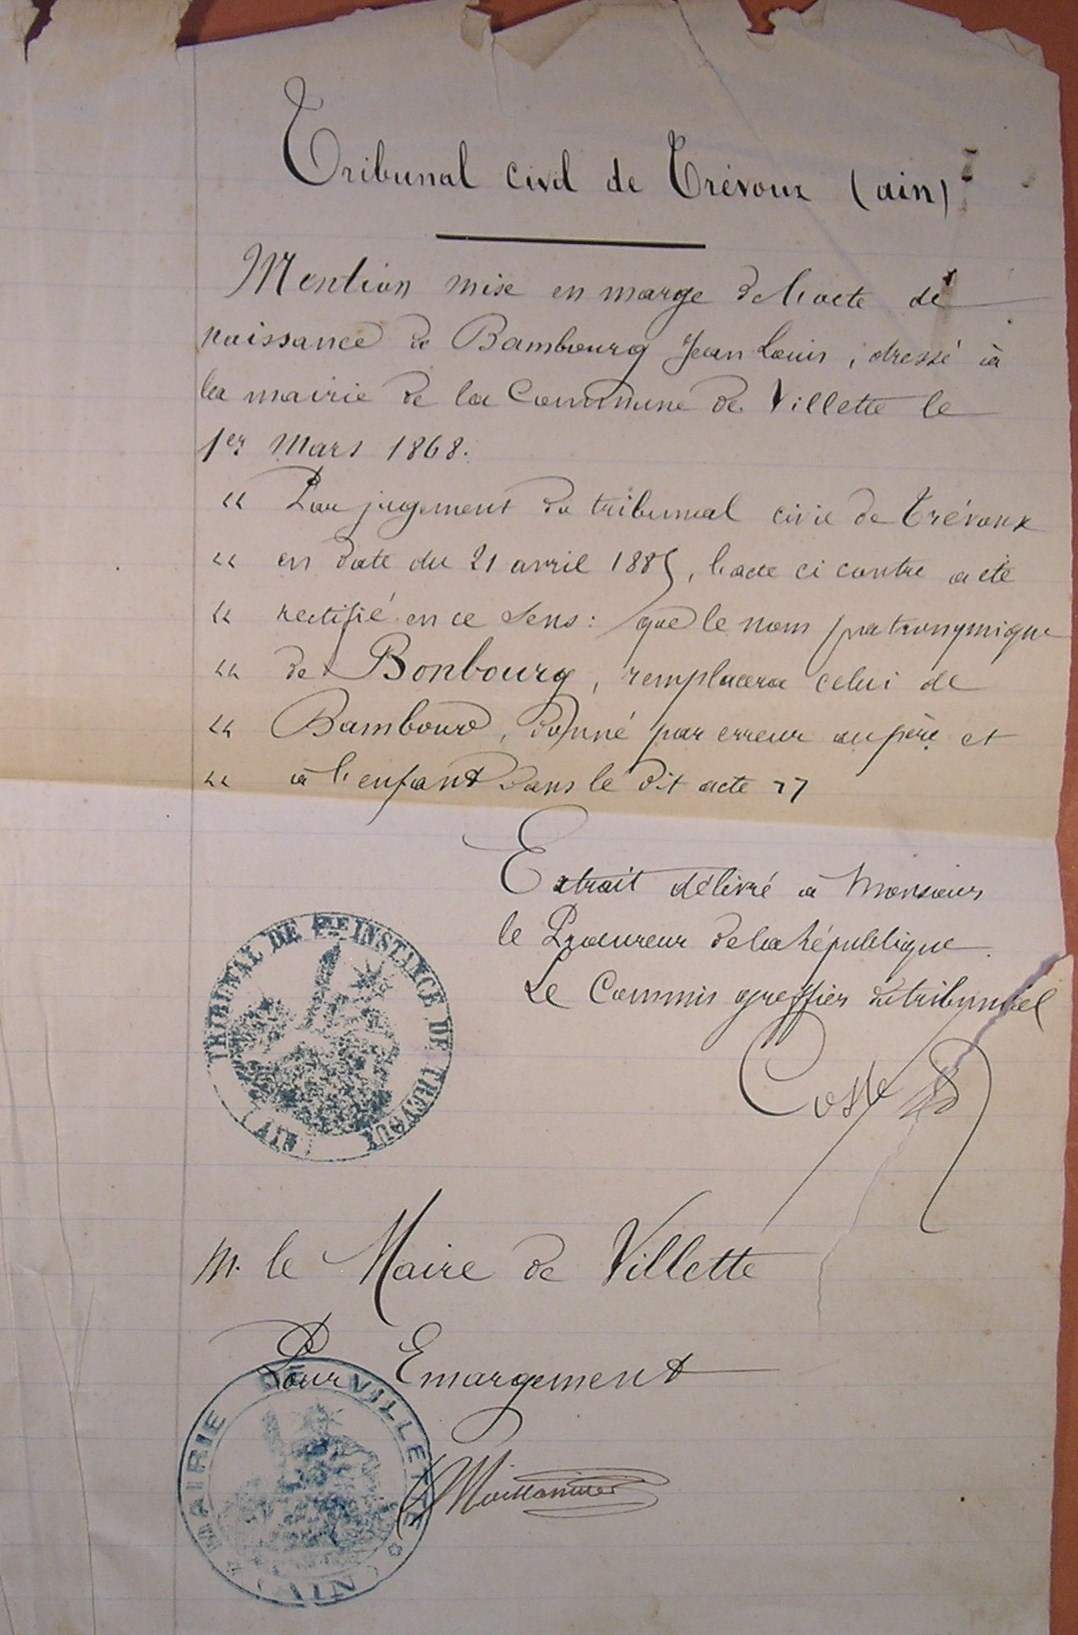 Tribunal civil de Trévoux (ain)
Mention mise en marge de l'acte de
naissance de Bambourg Jean Louis, dressé à
la mairie de la Commune de Villette le
1er Mars 1868.
" Par jugement du tribunal civil de Trévoux
" en date du 21 avril 1885, l'acte ci contre a été
" rectifié en ce sens: que le nom patronymique
" de Bonbourg, remplacera celui de
" Bambourd, donné par erreur au père et
" à l'enfant dans le dit acte "
Extrait délivré à Monsieur
le Procureur de la République.
Le Commis greffier du tribunal
TRIBUNAL DE 1ERE INSTANCE DE TREVOUX (AIN)
Coste
M. le Maire de Villette
Pour Emargement
MAIRIE DE VILLETTE (AIN)